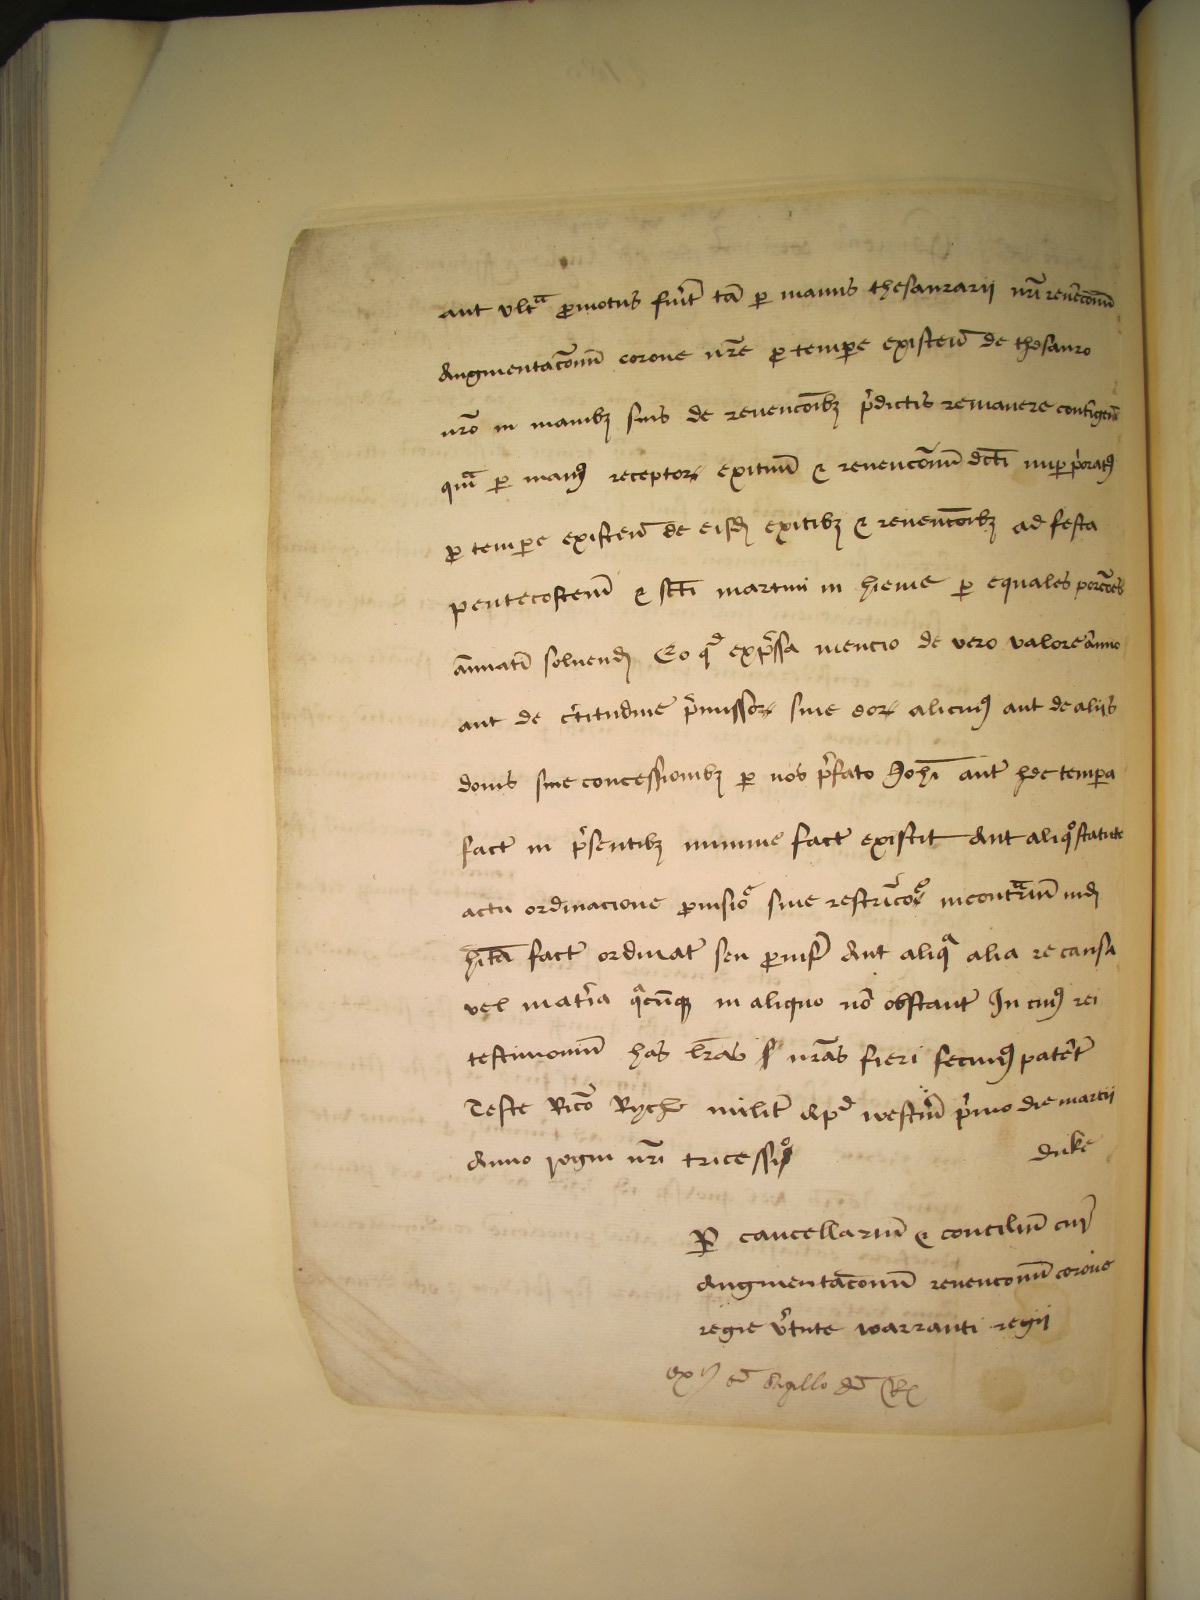 aut ultᵃ ꝓmotus fu̾it tā ꝑ manus thesaurarii nr̄i revēcōnū
Augmentac̄onū corone nr̄e ꝓ tempe existen̄ de thesauro
nr̄o in manibȝ suis de revencōibȝ p̄dictis remanere contigen̄
qᵃm ꝑ manꝰ receptoꝝ exituū & revencōnū dc̄ti nuꝑ p̾oratꝰ
ꝓ tempe existen̄ de eisdꝫ exitibȝ & revencōibȝ ad festa
pentecosten̄ & sc̄ti martini in hieme ꝑ equales porc̄ōes
annuatī solvendꝫ Eo qᵈ exp̄ssa mencio de vero valore annuo
aut de c̾titudine p̄missoꝝ sive eoꝝ alicuiꝰ aut de aliis
donis sive concessionibȝ ꝑ nos p̄fato Joh̄i ante hec tempa
fact̄ in p̄sentibȝ minime fact̄ existit Aut aliqᵒ statuto
actu ordinacione ꝓvisioᵉ sive restricc̄oᵉ incontᵃriū indꝫ
h̄itā fact̄ ordinat̄ seu ꝓvis̄ Aut aliqᵃ alia re causa
vel mat̾ia qᵃcūqꝫ in aliquo nō obstant̄ In cuiꝰ rei
testimoniū has lr̄as nr̄as fieri fecimꝰ patēt̄
Teste Ric̄o Ryche milit̄ Apᵈ westm̄ p̾mo die marcii
Anno regni nr̄i tricessiᵒ Duke
Ꝑ cancellariū & conciliū cur̄
Augmentac̄onū revencionū corone
regie v̾tute warranti regii